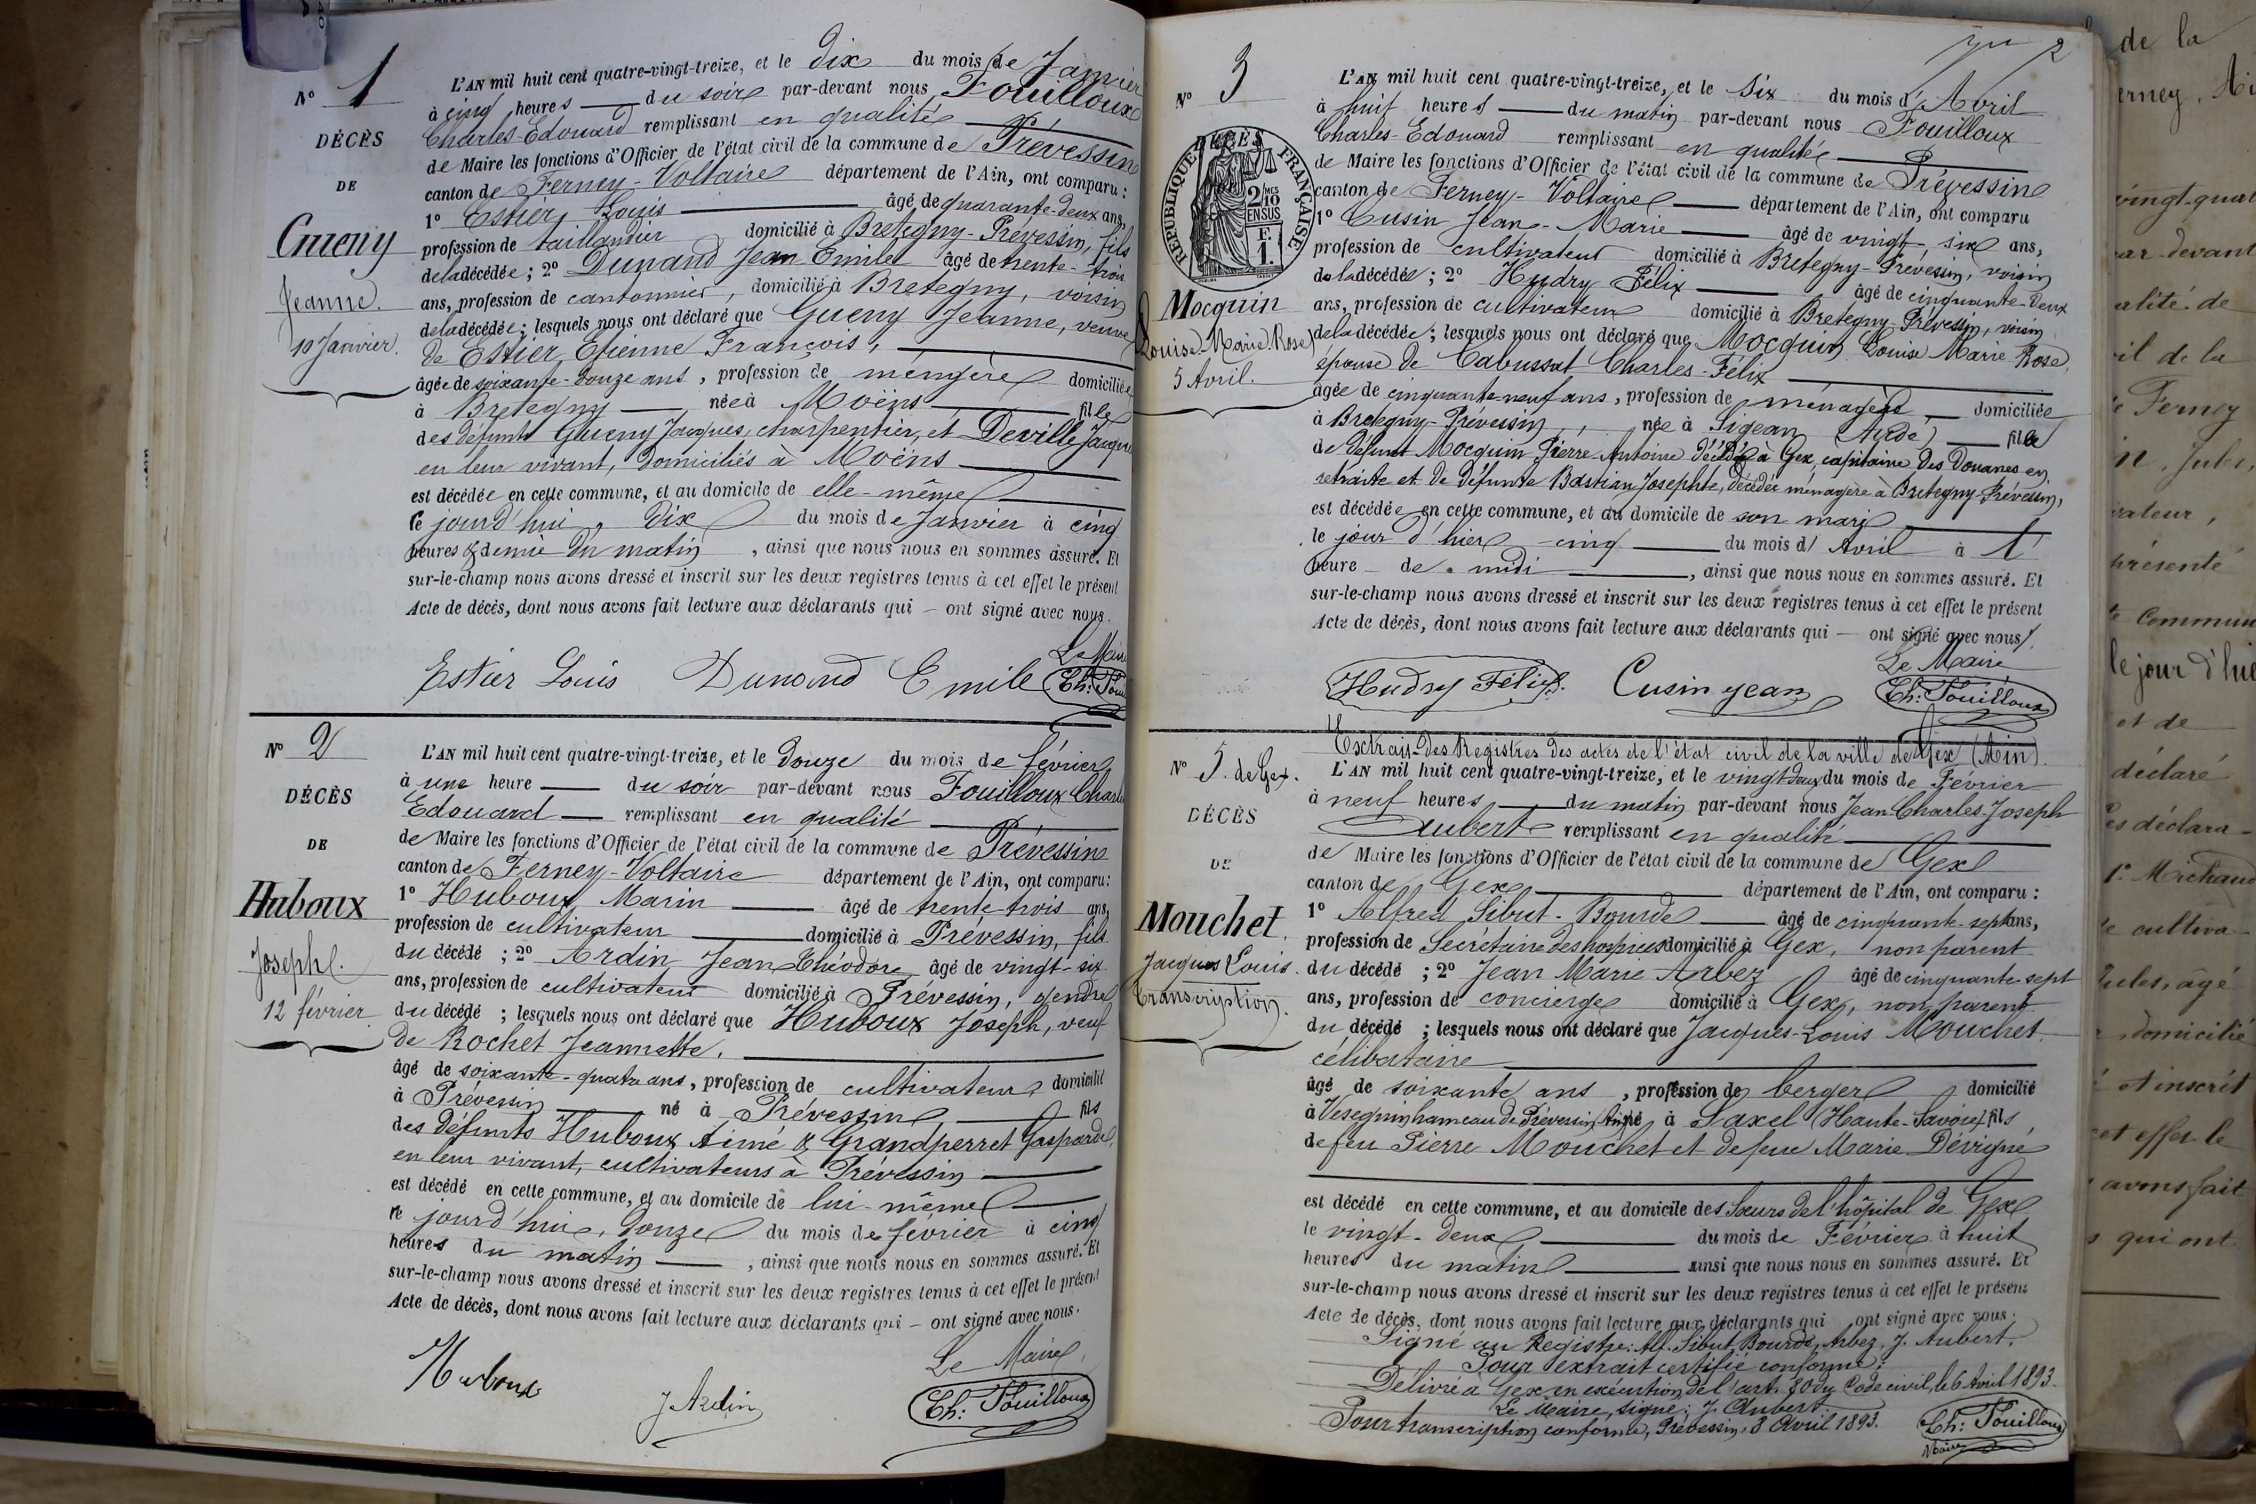 Nº 1
DÉCÈS
DE
Gueny
Jeanne.
10 Janvier.
L'AN mil huit cent quatre-vingt-treize, et le dix du mois de Janvier
à cinq heures du soir par-devant nous Fouilloux
Charles-Edouard remplissant en qualité
de Maire les fonctions d'Officier de l'état civil de la commune de Prévessin
canton de Ferney-Voltaire département de l'Ain, ont comparu :
1º Estier Louis âgé de quarante-deux ans,
profession de taillandier domicilié à Bretegny-Prévessin, fils
de la décédée ; 2º Dunand Jean Emile âgé de trente-trois
ans, profession de cantonnier, domicilié à Bretegny, voisin
de la décédée ; lesquels nous ont déclaré que Gueny Jeanne, veuve
de Estier Etienne François,
âgée de soixante-douze ans, profession de ménagère domiciliée
à Bretegny née à Moëns fille
des défunts Gueny Jacques, charpentier, et Deville Jacqu
en leur vivant, domiciliés à Moëns
est décédée en cette commune, et au domicile de elle-même
ce jourd'hui, dix du mois de Janvier à cinq
heures & demie du matin, ainsi que nous nous en sommes assuré. Et
sur-le-champ nous avons dressé et inscrit sur les deux registres tenus à cet effet le présent
Acte de décès, dont nous avons fait lecture aux déclarants qui — ont signé avec nous.
Le Maire
Estier Louis Dunand Emile Ch: Foui
Nº 2
DÉCÈS
DE
Huboux
Joseph.
12 février
L'AN mil huit cent quatre-vingt-treize, et le douze du mois de février
à une heure du soir par-devant nous Fouilloux Charles
Edouard remplissant en qualité
de Maire les fonctions d'Officier de l'état civil de la commune de Prévessin
canton de Ferney-Voltaire département de l'Ain, ont comparu :
1º Huboux Marin âgé de trente-trois ans,
profession de cultivateur domicilié à Prévessin, fils
du décédé ; 2º Ardin Jean Théodore âgé de vingt-six
ans, profession de cultivateur domicilié à Prévessin, gendre
du décédé ; lesquels nous ont déclaré que Huboux Joseph, veuf
de Rochet Jeannette,
âgé de soixante-quatre ans, profession de cultivateur domicilié
à Prévessin né à Prévessin fils
des défunts Huboux Aimé & Grandperret Gasparde,
en leur vivant, cultivateurs à Prévessin
est décédé en cette commune, et au domicile de lui-même
ce jourd'hui, douze du mois de février à cinq
heures du matin, ainsi que nous nous en sommes assuré. Et
sur-le-champ nous avons dressé et inscrit sur les deux registres tenus à cet effet le présent
Acte de décès, dont nous avons fait lecture aux déclarants qui — ont signé avec nous.
Le Maire,
Huboux J Ardin Ch: Fouilloux
2
Nº 3
DÉCÈS
RÉPUBLIQUE FRANÇAISE
2 MES 10
EN SUS
F.
1.
Mocquin
Louise-Marie-Rose
5 Avril.
L'AN mil huit cent quatre-vingt-treize, et le six du mois d'Avril
à huit heures du matin par-devant nous Fouilloux
Charles-Edouard remplissant en qualité
de Maire les fonctions d'Officier de l'état civil de la commune de Prévessin
canton de Ferney-Voltaire département de l'Ain, ont comparu
1º Cusin Jean-Marie âgé de vingt-six ans,
profession de cultivateur domicilié à Bretegny-Prévessin, voisin
de la décédée ; 2º Hudry Félix âgé de cinquante-deux
ans, profession de cultivateur domicilié à Bretegny-Prévessin, voisin
de la décédée ; lesquels nous ont déclaré que Mocquin Louise Marie Rose,
épouse de Cabussat Charles-Félix
âgée de cinquante-neuf ans, profession de ménagère domiciliée
à Bretegny-Prévessin, née à Sigean (Aude) fille
de défunt Mocquin Pierre Antoine décédé à Gex, capitaine des Douanes en
retraite et de défunte Bastian Josephte, décédée ménagère à Bretegny-Prévessin,
est décédée en cette commune, et au domicile de son mari
le jour d'hier cinq du mois d'Avril à 1
heure de midi, ainsi que nous nous en sommes assuré. Et
sur-le-champ nous avons dressé et inscrit sur les deux registres tenus à cet effet le présent
Acte de décès, dont nous avons fait lecture aux déclarants qui — ont signé avec nous.
Le Maire
Hudry Félix. Cusin jean Ch: Fouilloux
Nº 5. de Gex.
DÉCÈS
DE
Mouchet
Jacques Louis.
Transcription.
Extrait des Registres des actes de l'état civil de la ville de Gex (Ain).
L'AN mil huit cent quatre-vingt-treize, et le vingt deux du mois de Février
à neuf heures du matin par-devant nous Jean Charles-Joseph
Aubert remplissant en qualité
de Maire les fonctions d'Officier de l'état civil de la commune de Gex
canton de Gex département de l'Ain, ont comparu :
1º Alfred Sibut-Bourde âgé de cinquante-sept ans,
profession de Secrétaire des hospices domicilié à Gex, non parent
du décédé ; 2º Jean Marie Arbez âgé de cinquante-sept
ans, profession de concierge domicilié à Gex, non parent
du décédé ; lesquels nous ont déclaré que Jacques-Louis Mouchet
célibataire
âgé de soixante ans, profession de berger domicilié
à Vesegnin hameau de Prévessin (Ain) né à Saxel (Haute-Savoie) fils
de feu Pierre Mouchet et de feue Marie Dévigne
est décédé en cette commune, et au domicile des Sœurs de l'hôpital de Gex
le vingt-deux du mois de Février à huit
heures du matin ainsi que nous nous en sommes assuré. Et
sur-le-champ nous avons dressé et inscrit sur les deux registres tenus à cet effet le présent
Acte de décès, dont nous avons fait lecture aux déclarants qui ont signé avec nous.
Signé au Registre: Alf. Sibut Bourde, Arbez, J. Aubert.
Pour extrait certifié conforme:
Délivré à Gex en exécution de l'art. 80 du Code civil, le 6 Avril 1893.
Le Maire, signé: J. Aubert.
Pour transcription conforme, Prévessin, 8 Avril 1893. Ch: Fouilloux
Maire
de la
erney, Ai
vingt-quat
par-devant
alité de
il de la
Ferney
n, Jules,
vateur,
présenté
commun
le jour d'hie
et de
déclaré
es déclara-
1º Marchand
cultiva-
Jules, âgé
domicilié
et inscrit
cet effet le
avons fait
qui ont